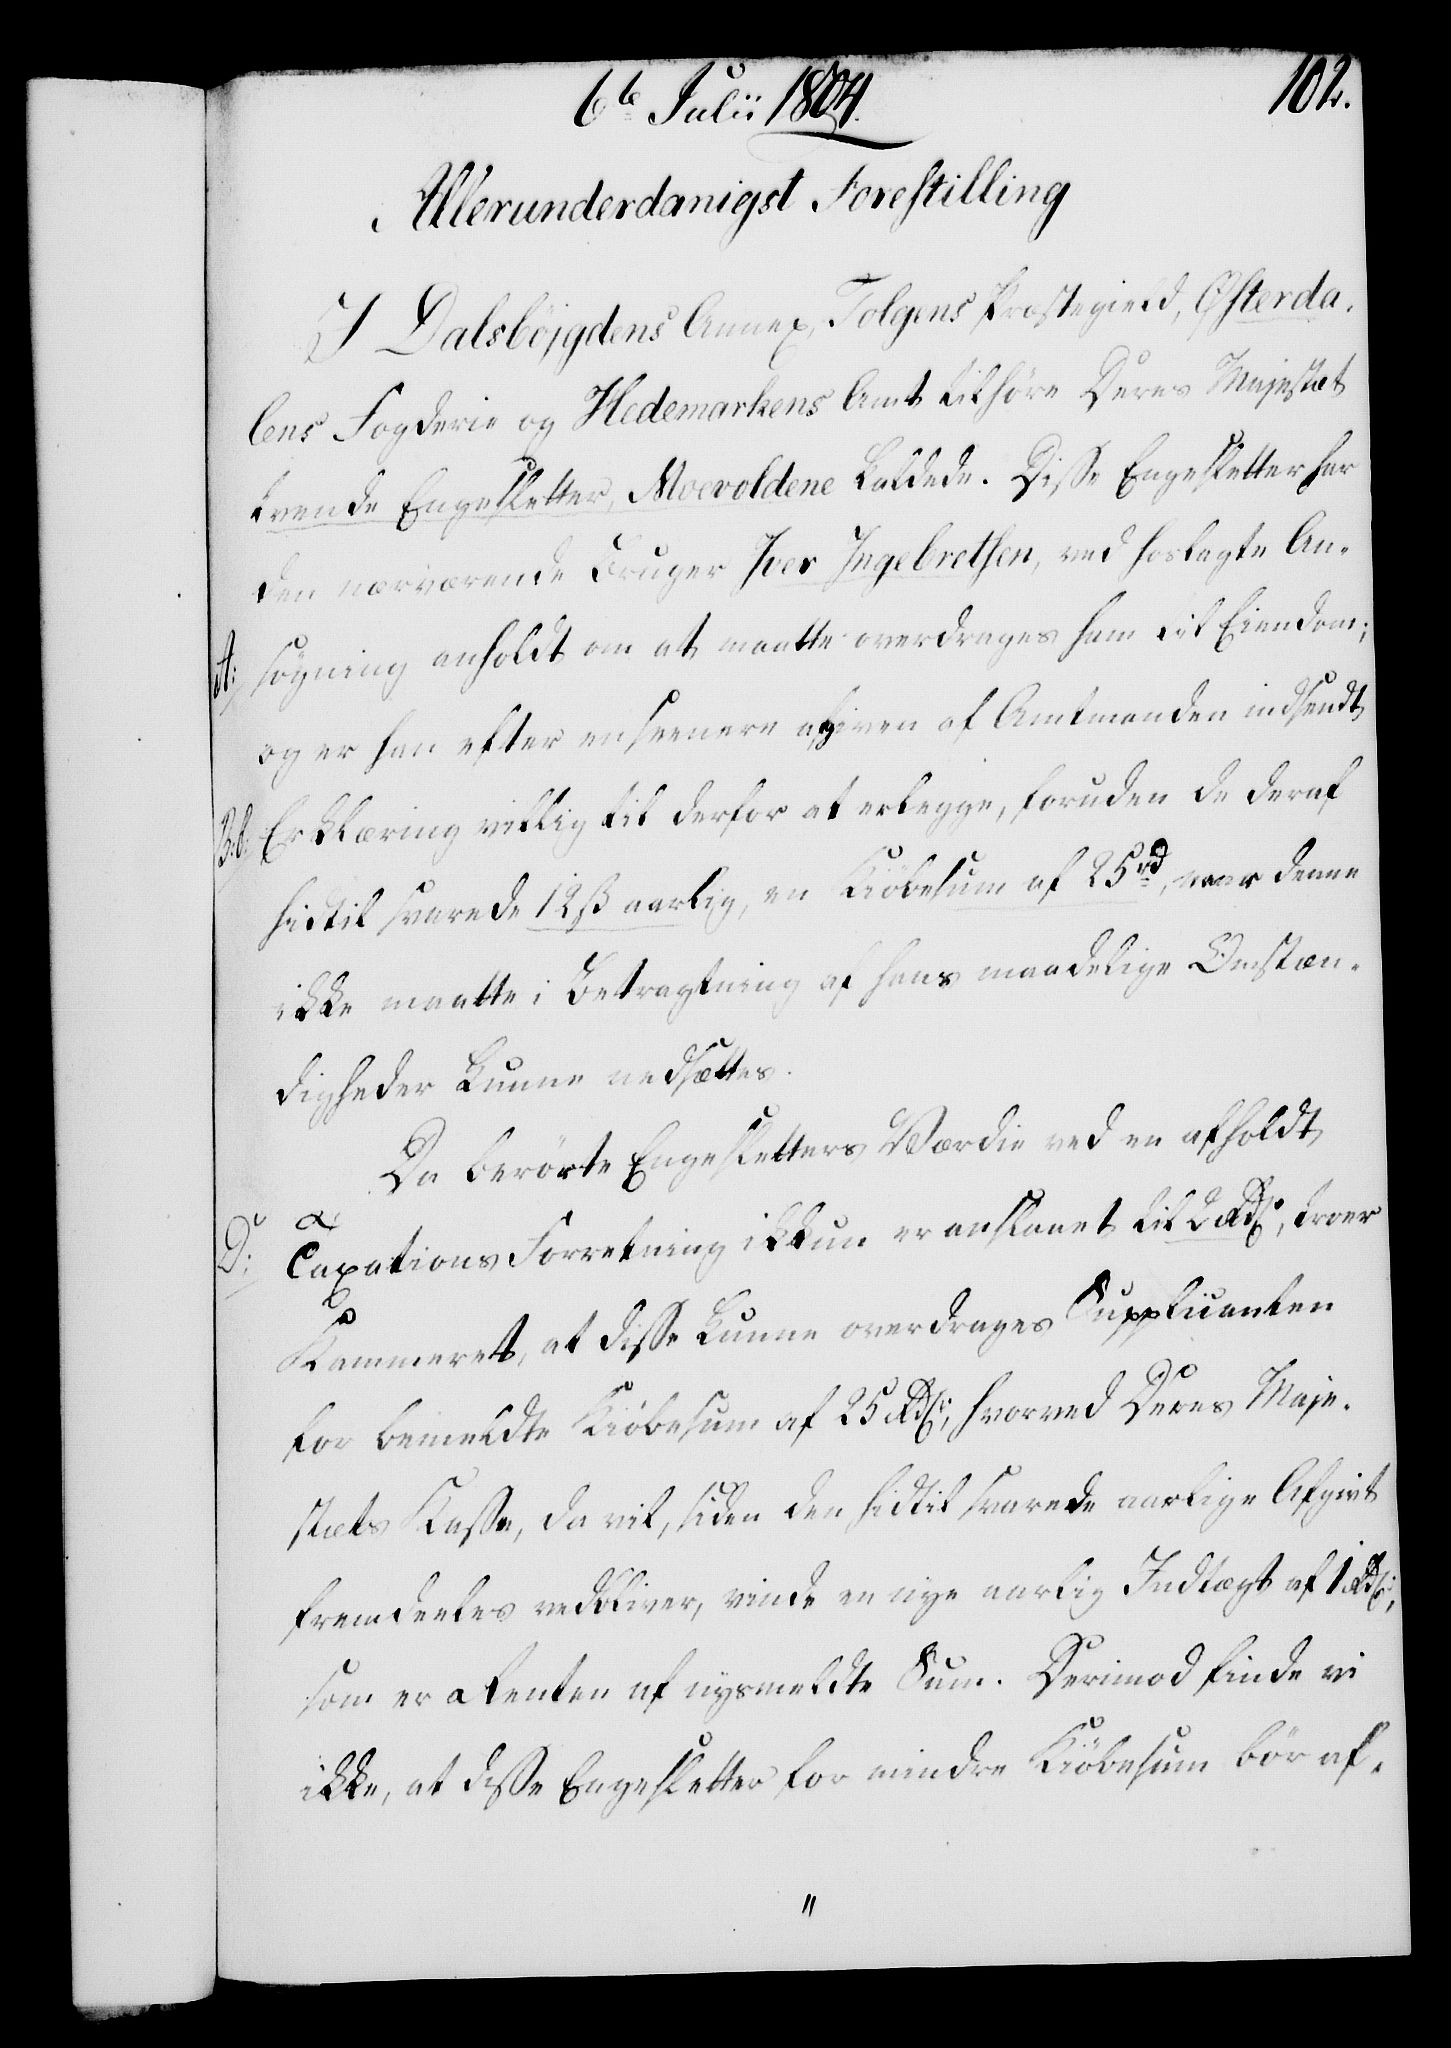 6te Julii 1804.
102.
Allerunderdanigst Forestilling
I Dalsböjgdens Annex, Tolgens Præstegield, Østerda-
lens Fogderie og Hedemarkens Amt tilhöre Deres Majestæt
tvende Engesletter, Moevoldene kaldede. Disse Engesletter har
den nærværende Bruger Iver Ingebrethsen, ved hoslagte An-
A: søgning anholdt om at maatte overdrages ham til Eiendom;
og er han efter en seenere afgiven af Amtmanden indsendt
B.C: Erklæring villig til derfor at erlegge, foruden de deraf
hidtil svarede 12 ß aarlig, en Kiöbesum af 25 rd, naar denne
ikke maatte i Betragtning af hans maadelige Omstæn-
digheder kunne nedsættes.
Da berörte Engesletters Værdie ved en afholdt
D: Taxations Forretning ikkun er anslaaet til 2 Rdlr, troer
Kammeret, at disse kunne overdrages Supplicanten
for bemeldte Kiöbesum af 25 Rdlr, hvorved Deres Maje-
stæts Kasse, da vil, siden den hidtil svarede aarlige Afgivt
fremdeeles vedbliver, vinde en nye aarlig Indtægt af 1 Rdlr,
som er Renten af nysmeldte Sum. Derimod finde vi
ikke, at disse Engesletter for mindre Kiöbesum bör af-
"